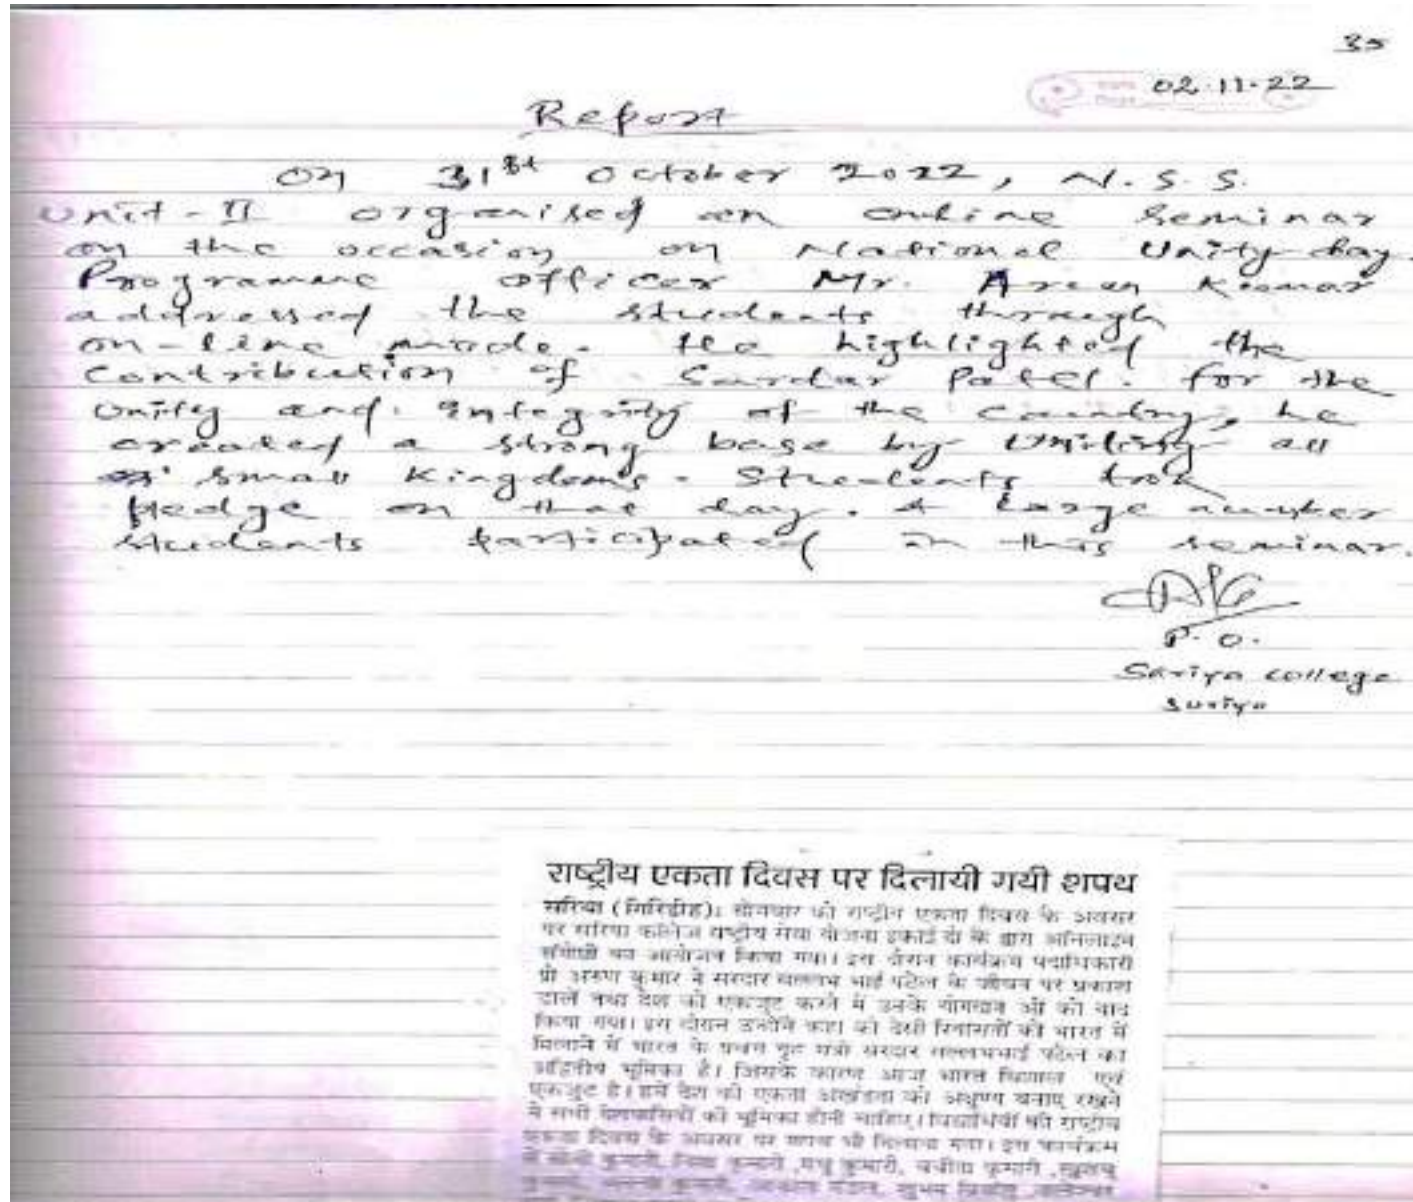 35
02.11.22
Report
On 31st October 2022, N.S.S.
Unit-II organised an online seminar
on the occasion on National Unity day.
Programme Officer Mr. Arun Kumar
addressed the students through
on-line mode. He highlighted the
contribution of Sardar Patel. for the
Unity and integrity of the country, he
created a strong base by Uniting all
small Kingdoms. Students took
pledge on that day. A large number
students participated in this seminar.
P.O.
Sariya College
Suriya
राष्ट्रीय एकता दिवस पर दिलायी गयी शपथ
सरिया (गिरिडीह)। सोमवार को राष्ट्रीय एकता दिवस के अवसर
पर सरिया कॉलेज राष्ट्रीय सेवा योजना इकाई दो के द्वारा ऑनलाइन
संगोष्ठी का आयोजन किया गया। इस दौरान कार्यक्रम पदाधिकारी
प्रो अरुण कुमार ने सरदार वल्लभ भाई पटेल के जीवन पर प्रकाश
डालें तथा देश को एकजुट करने में उनके योगदान ओं को याद
किया गया। इस दौरान उन्होंने कहा की देसी रियासतों को भारत में
मिलाने में भारत के प्रथम गृह मंत्री सरदार वल्लभभाई पटेल का
अद्वितीय भूमिका है। जिसके कारण आज भारत विशाल एवं
एकजुट है। हमें देश की एकता अखंडता को अक्षुण्ण बनाए रखने
में सभी देशवासियों की भूमिका होनी चाहिए। विद्यार्थियों को राष्ट्रीय
एकता दिवस के अवसर पर शपथ भी दिलाया गया। इस कार्यक्रम
में कुमारी, कुमारी ,मधु कुमारी, कुमारी ,खुशबू
कुमारी, कुमारी, मंडल, शुभम